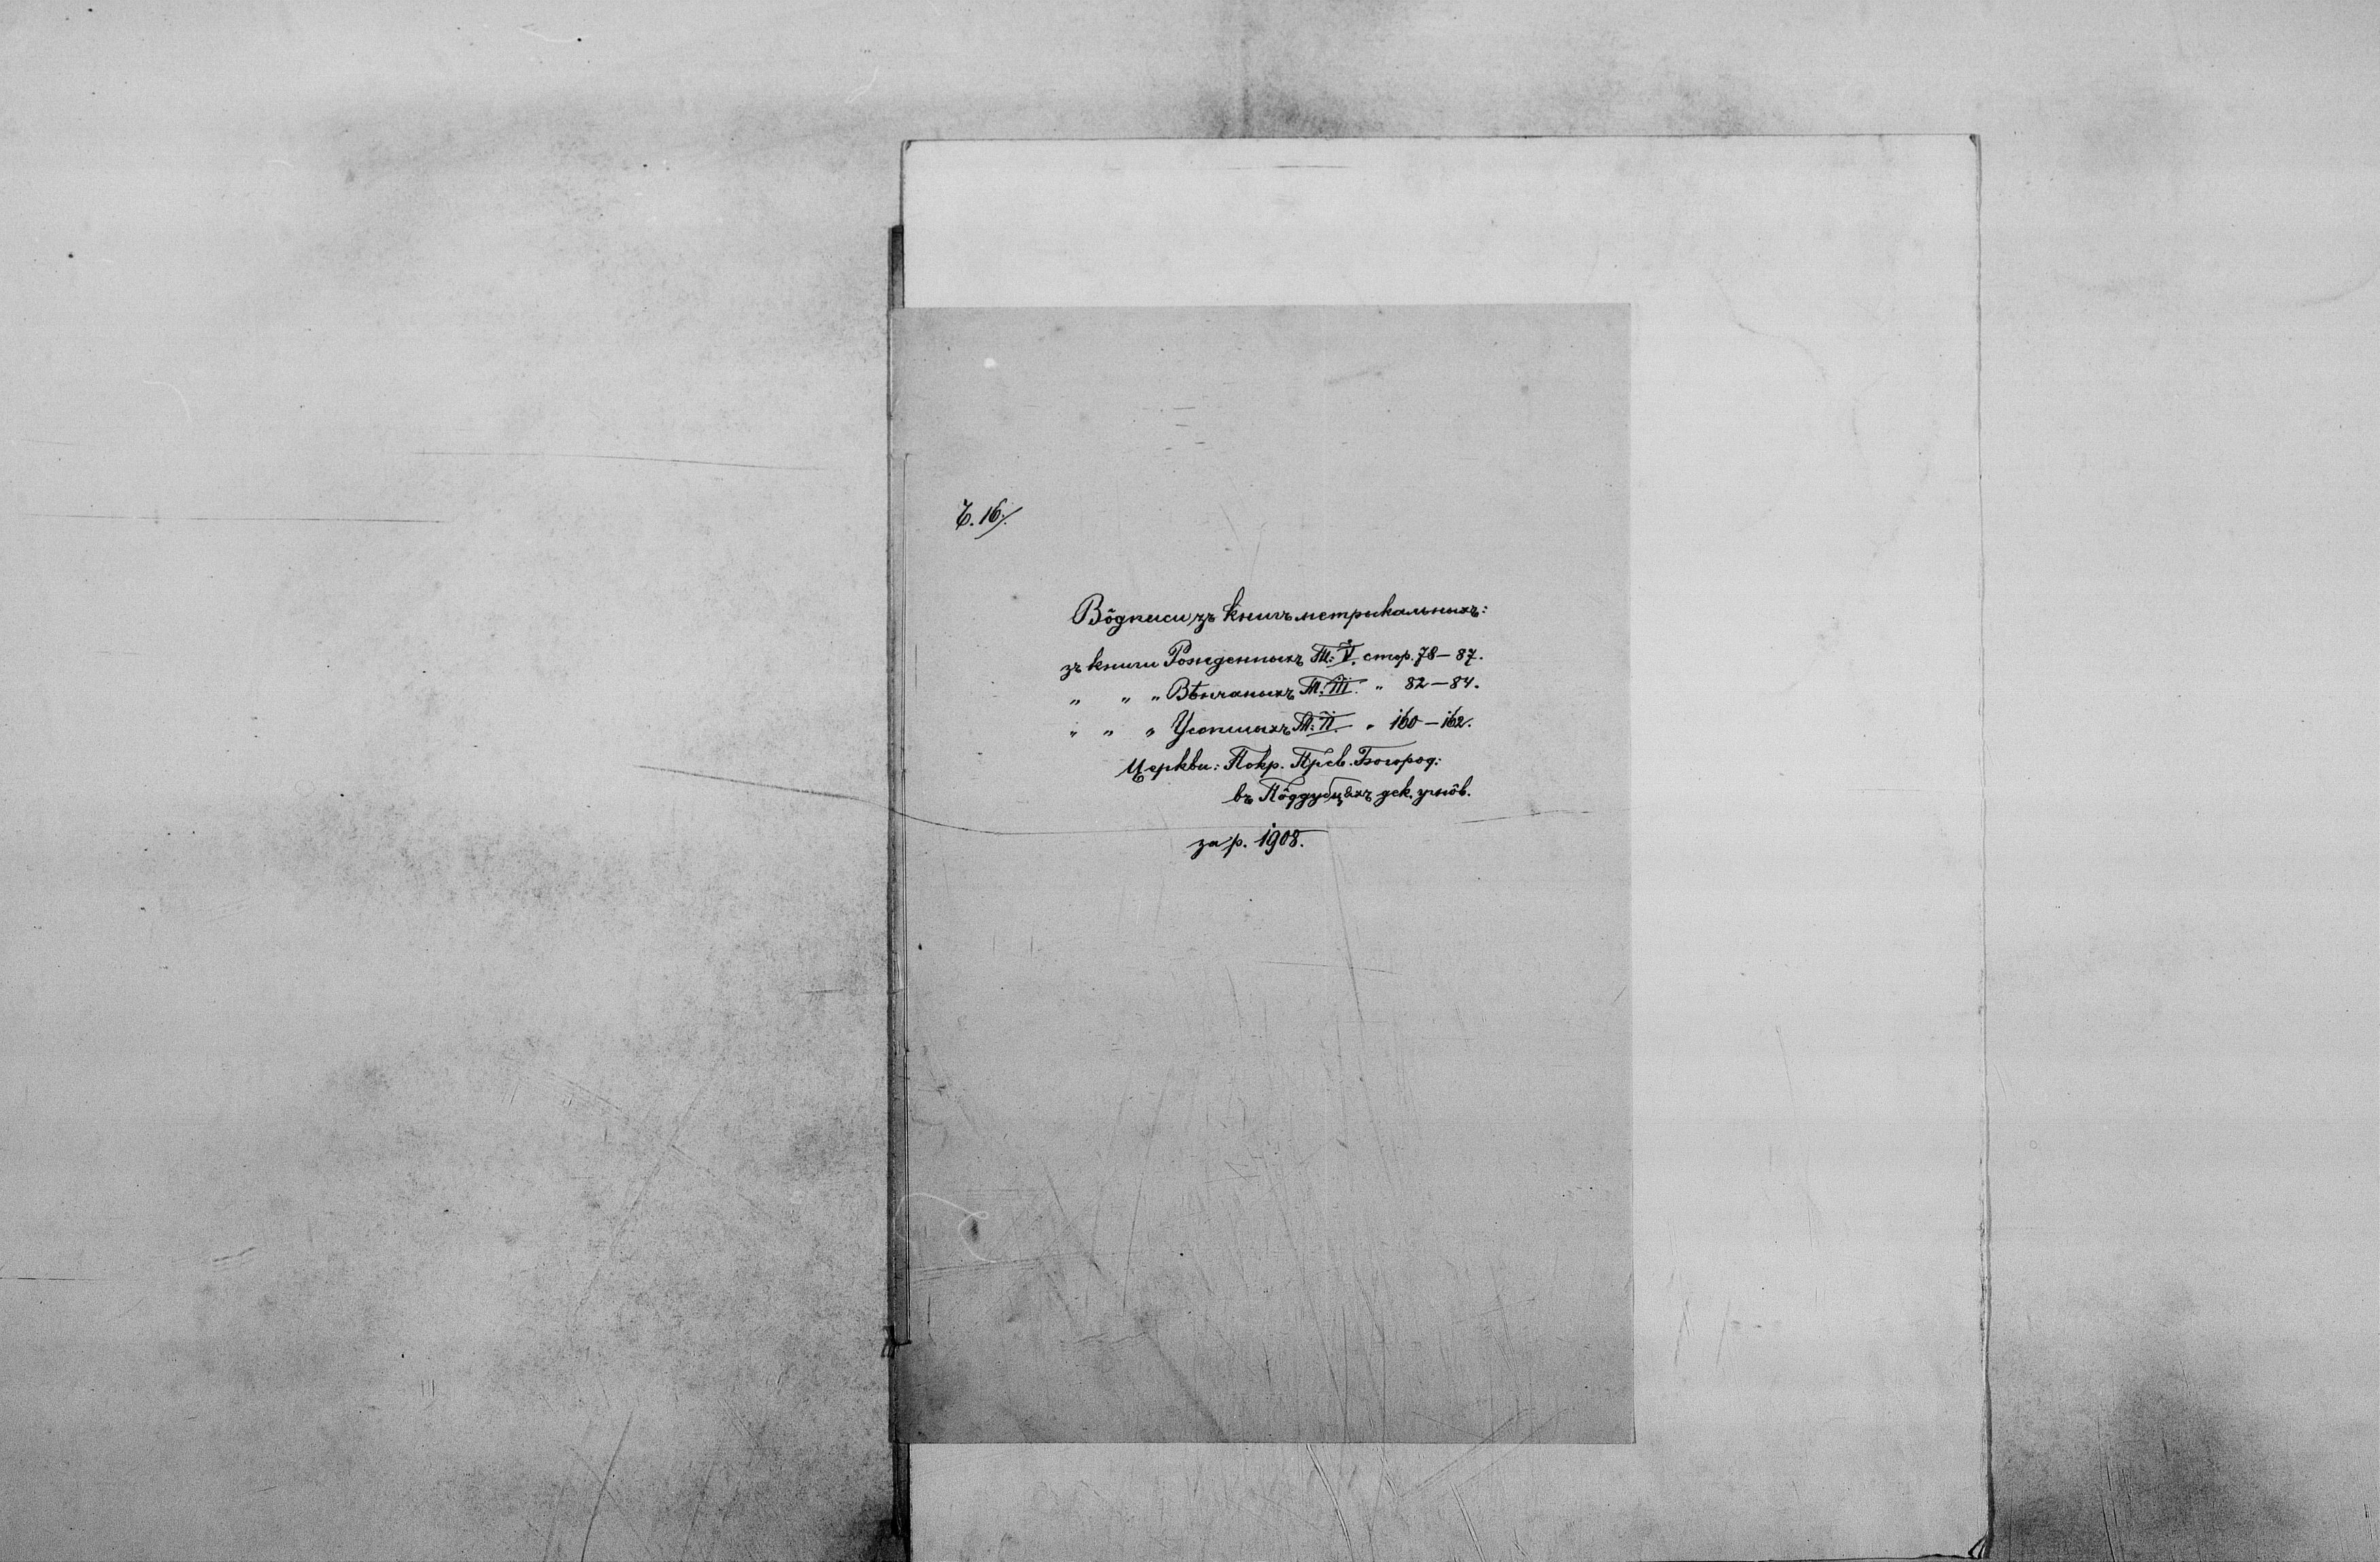 Ч. 16./.
Вôдписи зъ книгъ метрикальныхъ:
зъ книги Рожденныхъ Т: V. стор. 78–87.
" " " Вѣнчаныхъ Т. III. " 82–84.
" " " Усопшыхъ Т: II. " 160–162.
Церкви: Покр. Прсв. Богород:
въ Пôддубцѣхъ дек. угнôв.
за р. 1908.